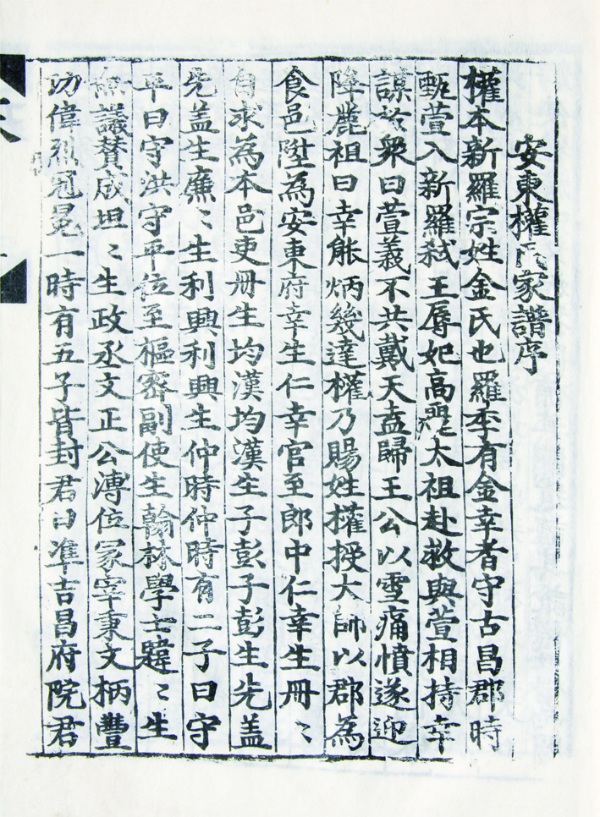 安東權氏家譜序
權本新羅宗姓金氏也羅季有金幸者守古昌郡時
甄萱入新羅弑王辱妃高麗太祖赴救與萱相持幸
謀於衆曰萱義不共戴天盍歸王公以雪痛憤遂迎
降麗祖曰幸能炳幾達權乃賜姓權授大師以郡為
食邑陞為安東府幸生仁幸官至郎中仁幸生冊〻
自求為本邑吏冊生均漢均漢生子彭子彭生先盖
先盖生廉〻生利興利興生仲時仲時有二子曰守
平曰守洪守平位至樞密副使生翰林學士韙〻生
議賛成坦〻生政丞文正公溥位冢宰秉文柄豐
功偉烈冠冕一時有五子皆封君曰準吉昌府院君